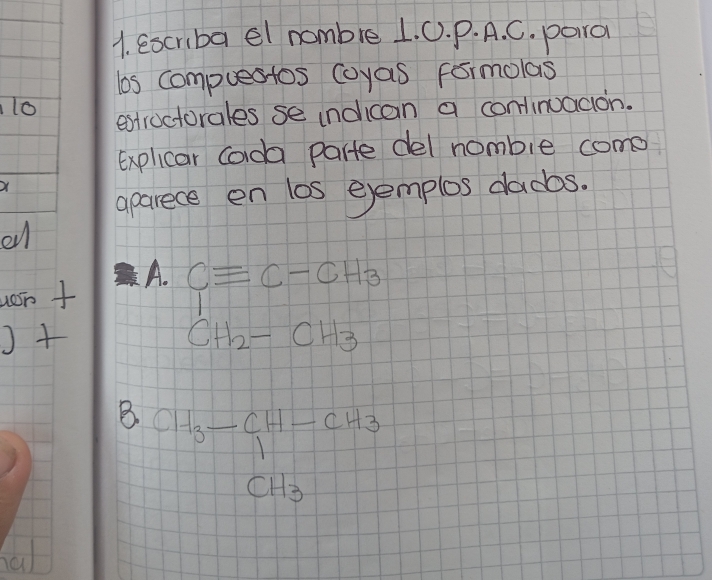 1. Escriba el nombre I.U.P.A.C. para
los compuestos cuyas formulas
estructurales se indican a continuación.
Explicar cada parte del nombre como
aparece en los ejemplos dados.
A. C≡C-CH3
|
CH2-CH3
B. CH3-CH-CH3
|
CH3